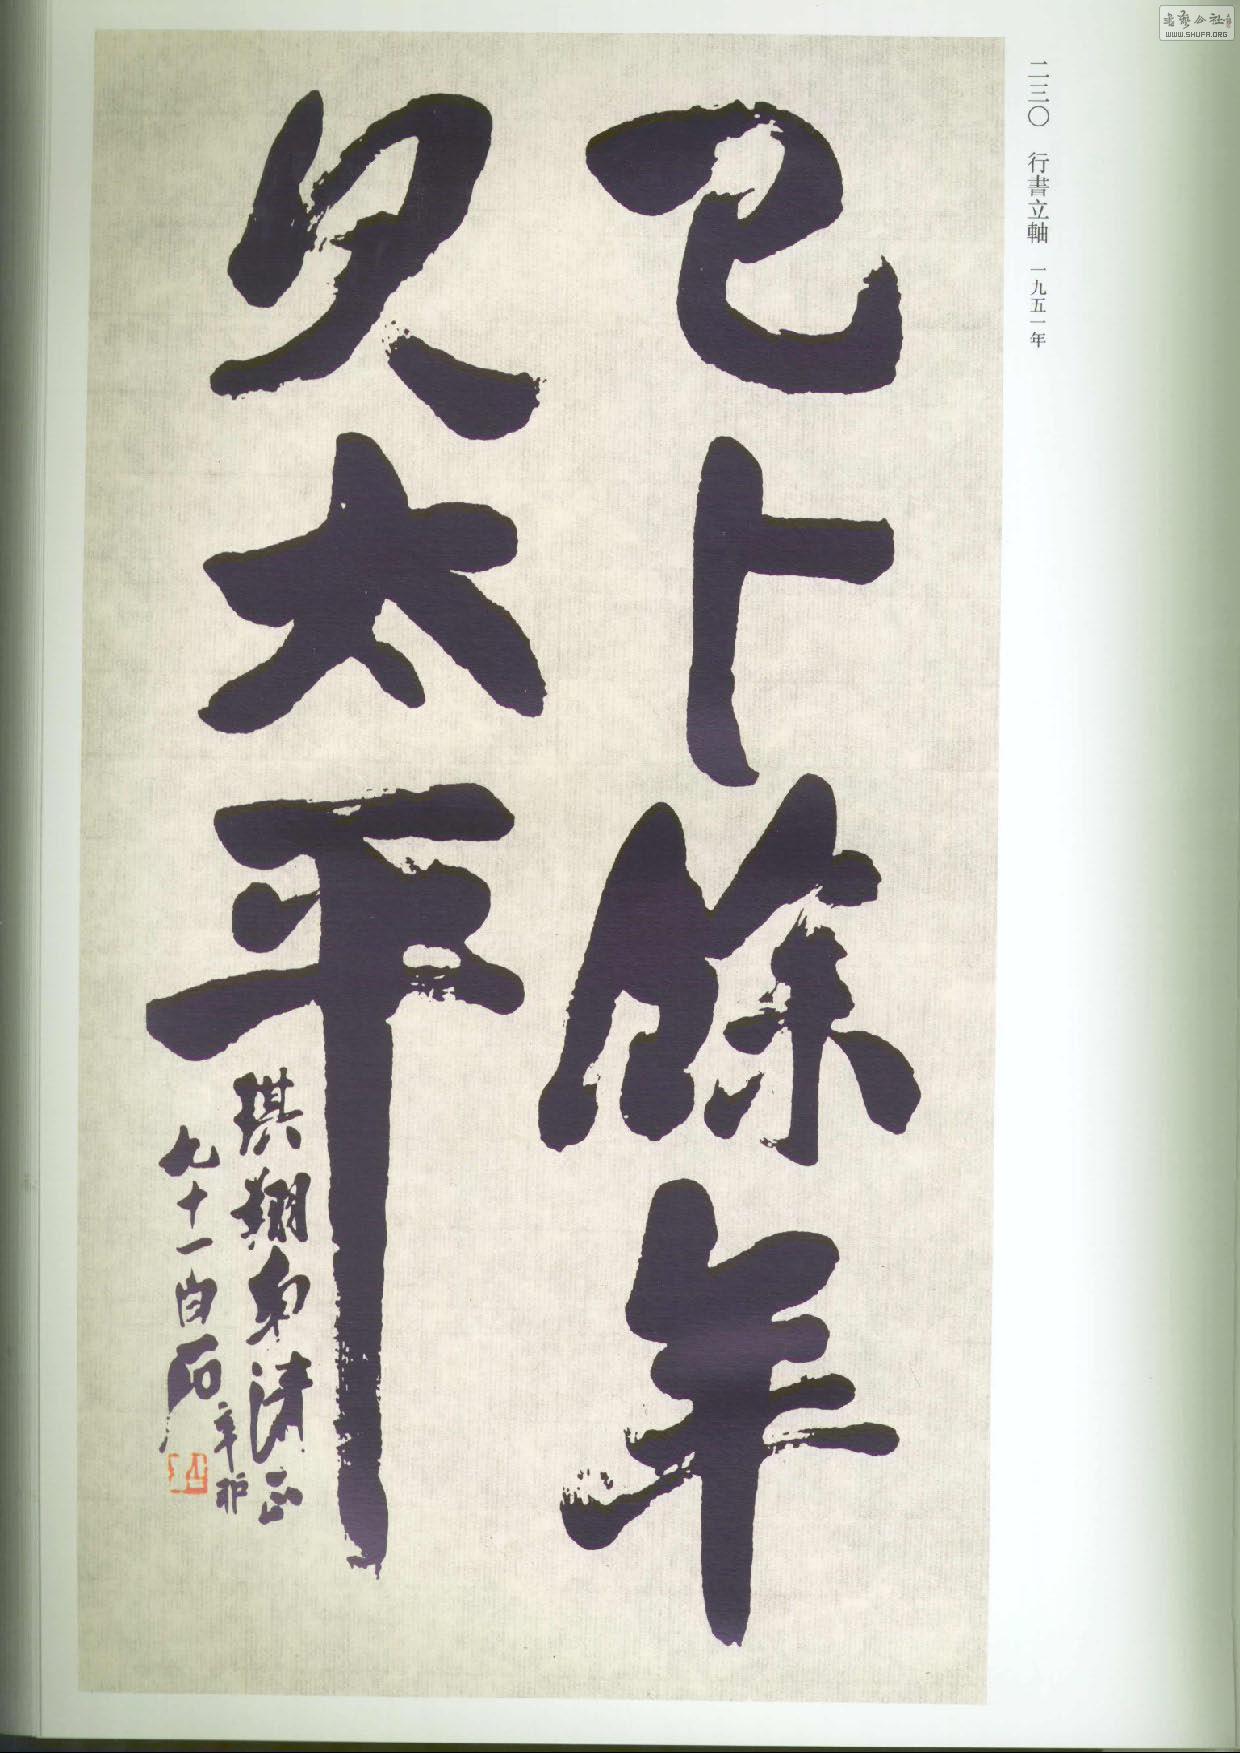 書藝公社
WWW.SHUFA.ORG
二三〇 行書立軸 一九五一年
已卜餘年
見太平
琪翔 清正
辛卯
九十一白石